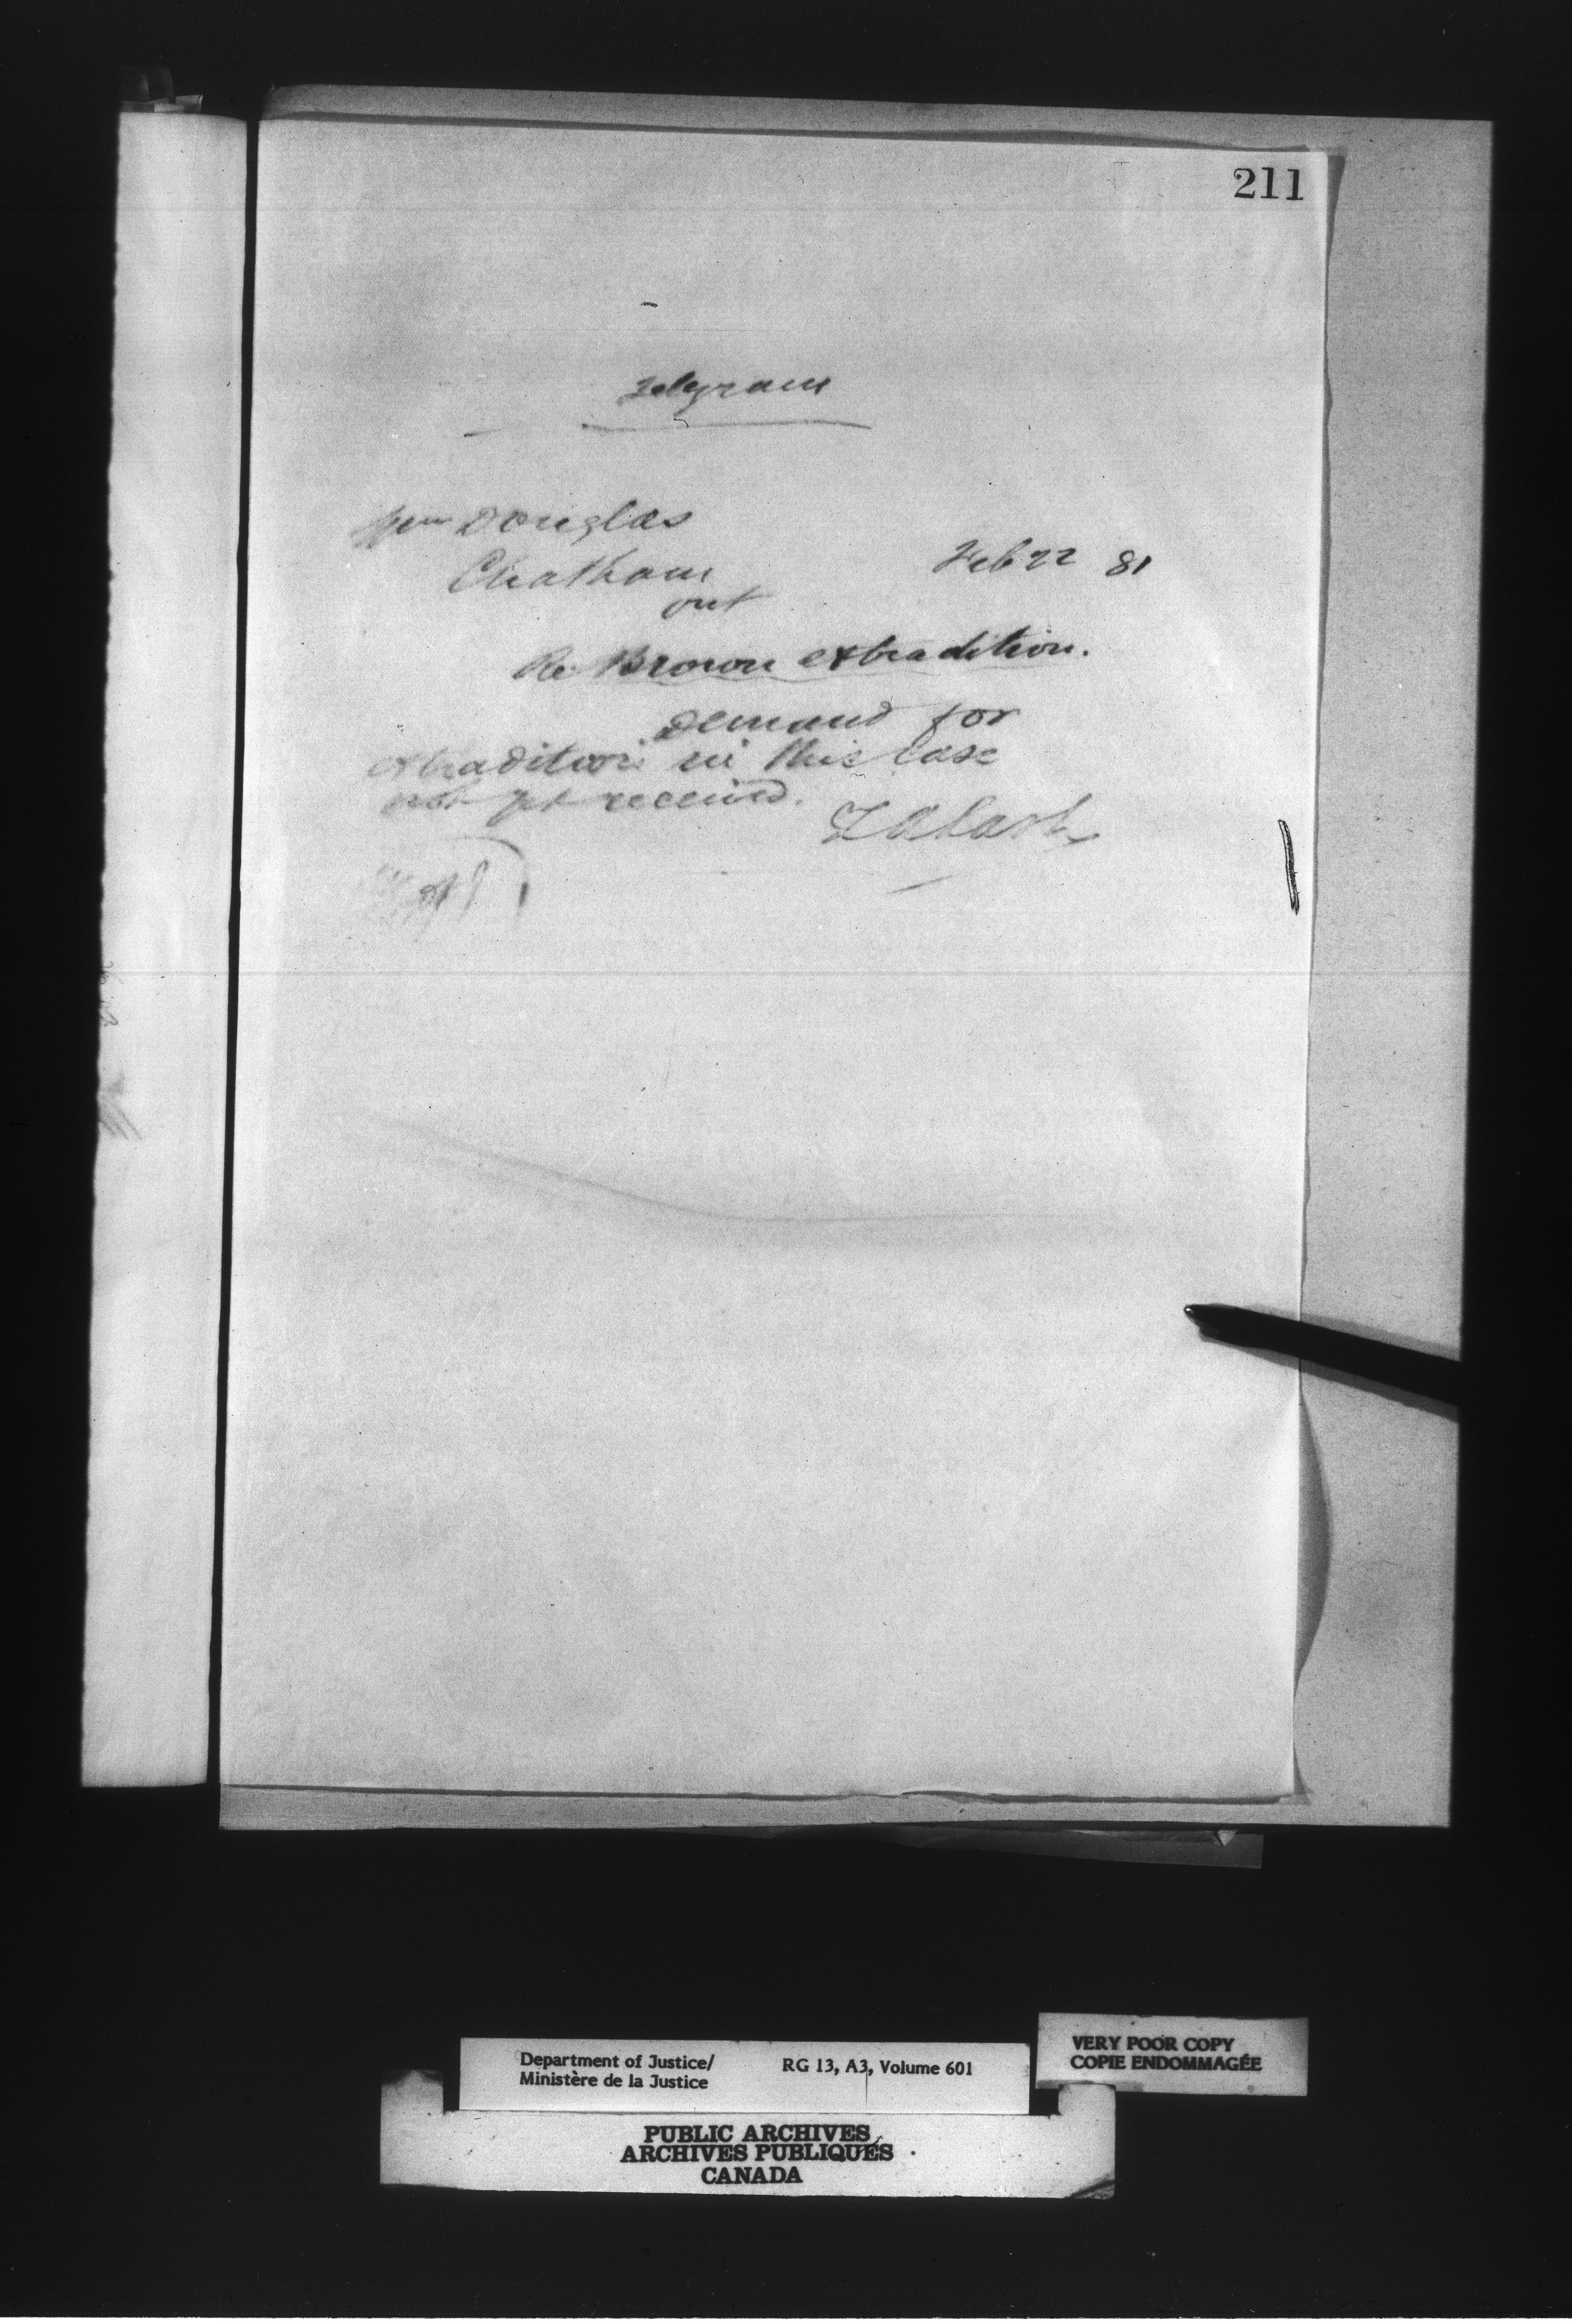 211
Telegram
Wm Douglas
Chatham
Ont
Feb 22 81
Re Brown extradition.
Demand for
extradition in this case
not yet received.
Z A Lash
Department of Justice/
Ministère de la Justice
RG 13, A3, Volume 601
VERY POOR COPY
COPIE ENDOMMAGÉE
PUBLIC ARCHIVES
ARCHIVES PUBLIQUES
CANADA